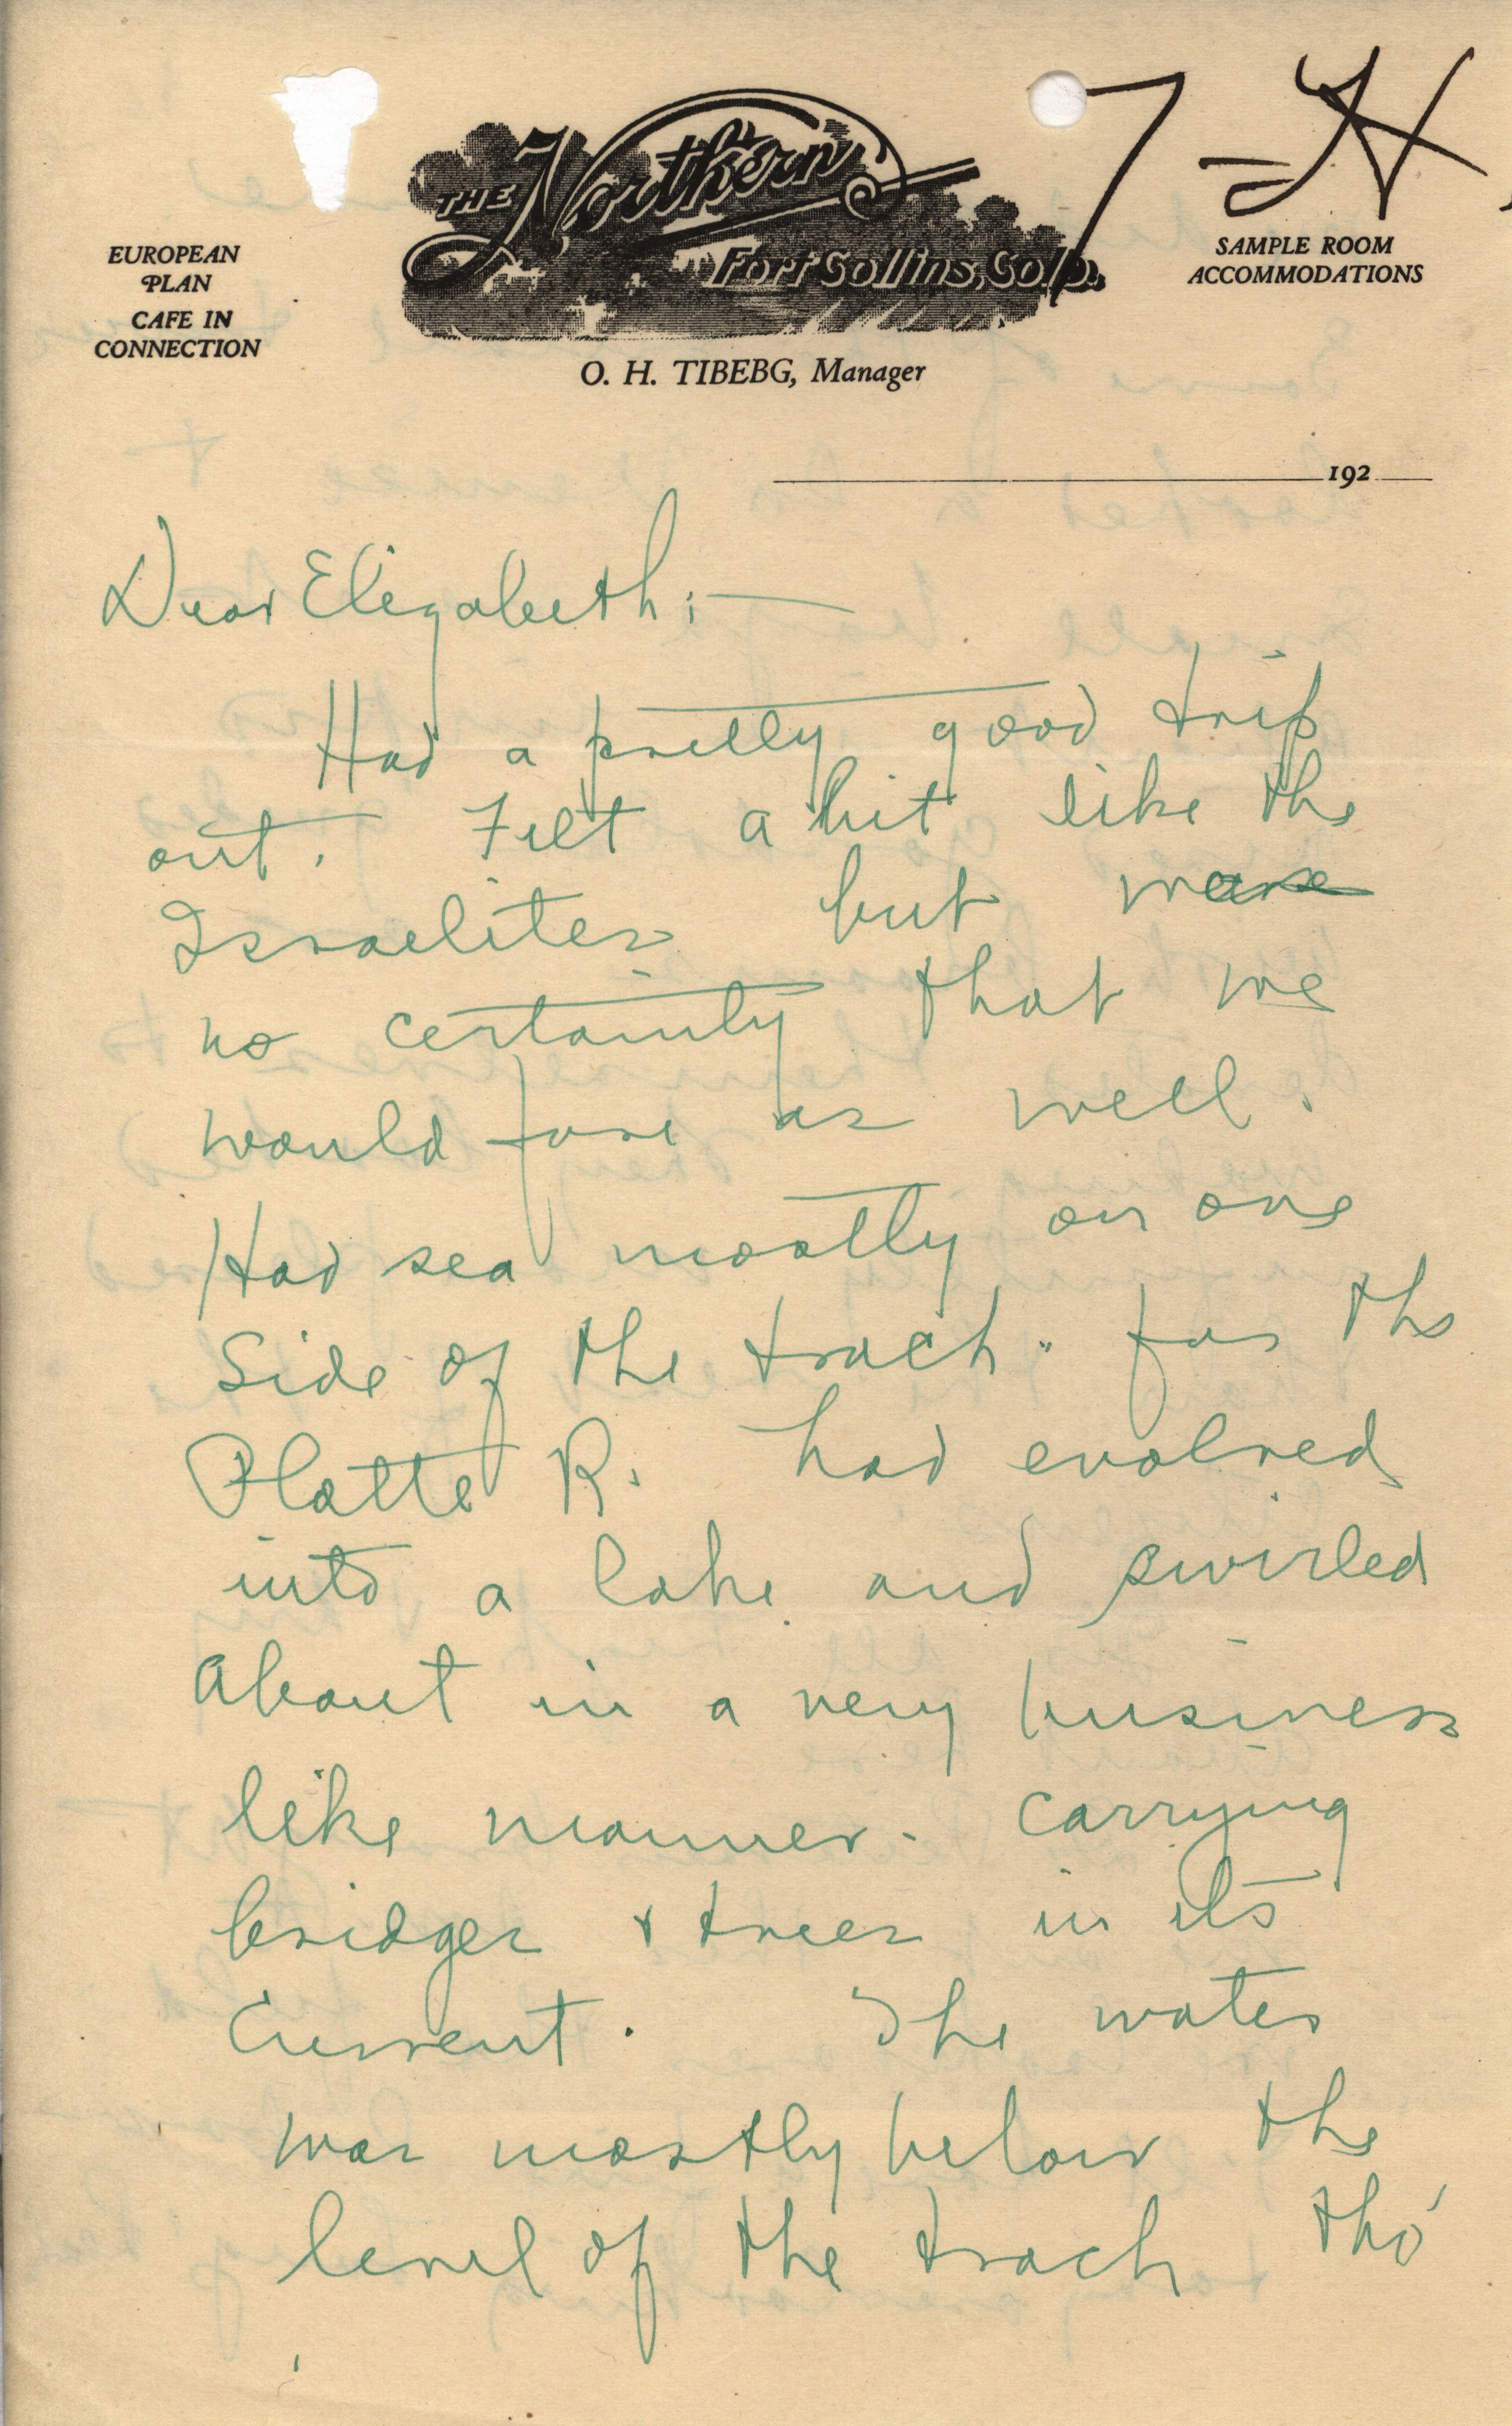 7 - H
THE Northern
Fort Collins, Colo.
EUROPEAN
PLAN
CAFE IN
CONNECTION
SAMPLE ROOM
ACCOMMODATIONS
O. H. TIBEBG, Manager
192
Dear Elizabeth:—
Had a pretty good trip
out. Felt a bit like the
Israelites but was
no certainty that we
would fare as well.
Had sea mostly on one
side of the track. for the
Platte R. had evolved
into a lake and swirled
about in a very business
like manner. carrying
bridges & trees in its
current. The water
was mostly below the
level of the track tho'